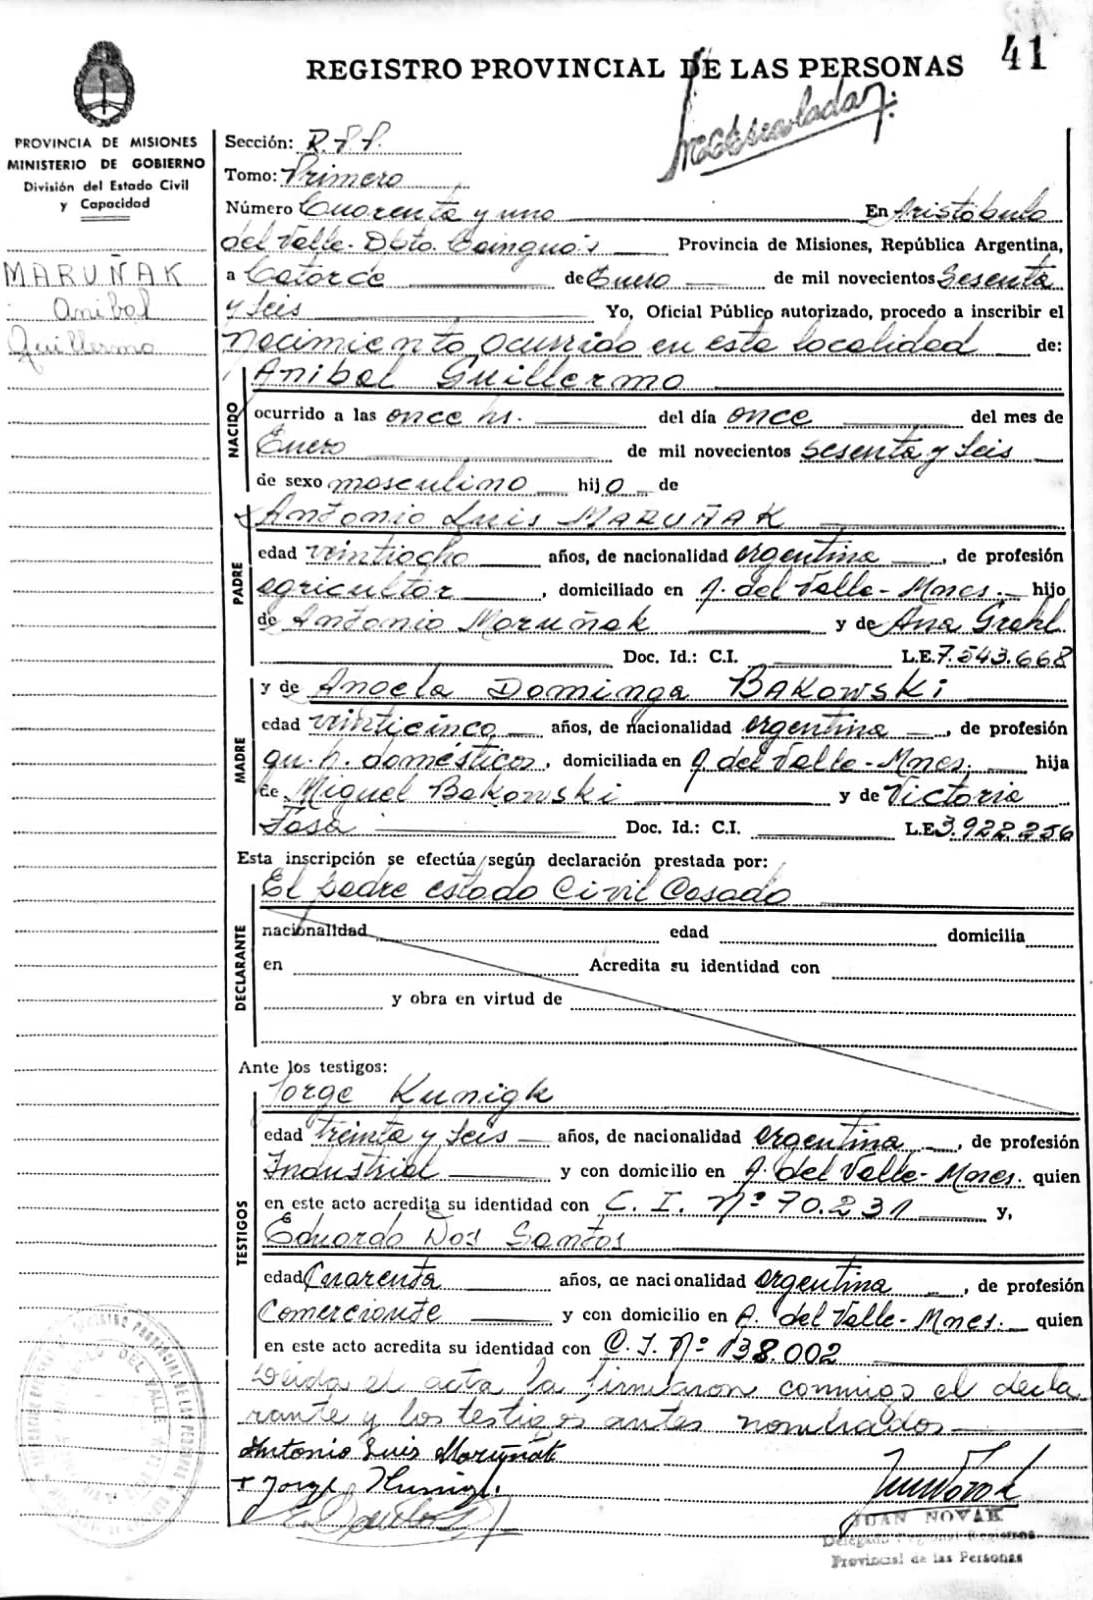 41
REGISTRO PROVINCIAL DE LAS PERSONAS
PROVINCIA DE MISIONES
MINISTERIO DE GOBIERNO
División del Estado Civil
y Capacidad
MARUÑAK
Anibal
Guillermo
Sección: R.P.P.
Tomo: Primero
Número Cuarenta y uno En Aristóbulo
del Valle. Dpto. Cainguás Provincia de Misiones, República Argentina,
a Catorce de Enero de mil novecientos Sesenta
y seis Yo, Oficial Público autorizado, procedo a inscribir el
nacimiento ocurrido en esta localidad de:
NACIDO
Anibal Guillermo
ocurrido a las once hs. del día once del mes de
Enero de mil novecientos sesenta y seis
de sexo masculino hijo de
PADRE
Antonio Luis MARUÑAK
edad veintiocho años, de nacionalidad argentina, de profesión
agricultor, domiciliado en A. del Valle-Mnes. hijo
de Antonio Maruñak y de Ana Grahl
Doc. Id.: C.I. L.E. 7.543.668
MADRE
y de Angela Dominga BAKOWSKI
edad veinticinco años, de nacionalidad argentina, de profesión
qu. h. domésticos, domiciliada en A. del Valle-Mnes. hija
de Miguel Bakowski y de Victoria
Doc. Id.: C.I. L.E. 3.922.256
Esta inscripción se efectúa según declaración prestada por:
DECLARANTE
El padre estado Civil Casado
nacionalidad edad domicilia
en Acredita su identidad con
y obra en virtud de
Ante los testigos:
TESTIGOS
Jorge Kunigk
edad treinta y seis años, de nacionalidad argentina, de profesión
Industrial y con domicilio en A. del Valle-Mnes. quien
en este acto acredita su identidad con C. I. Nº 70.231 y,
Eduardo Dos Santos
edad Cuarenta años, de nacionalidad argentina, de profesión
Comerciante y con domicilio en A. del Valle-Mnes. quien
en este acto acredita su identidad con C. I. Nº 138.002
Leida el acta la firmaron conmigo el decla
rante y los testigos antes nombrados
Antonio Luis Maruñak
JUAN NOVAK
Delegado Regional Registros
Provincial de las Personas